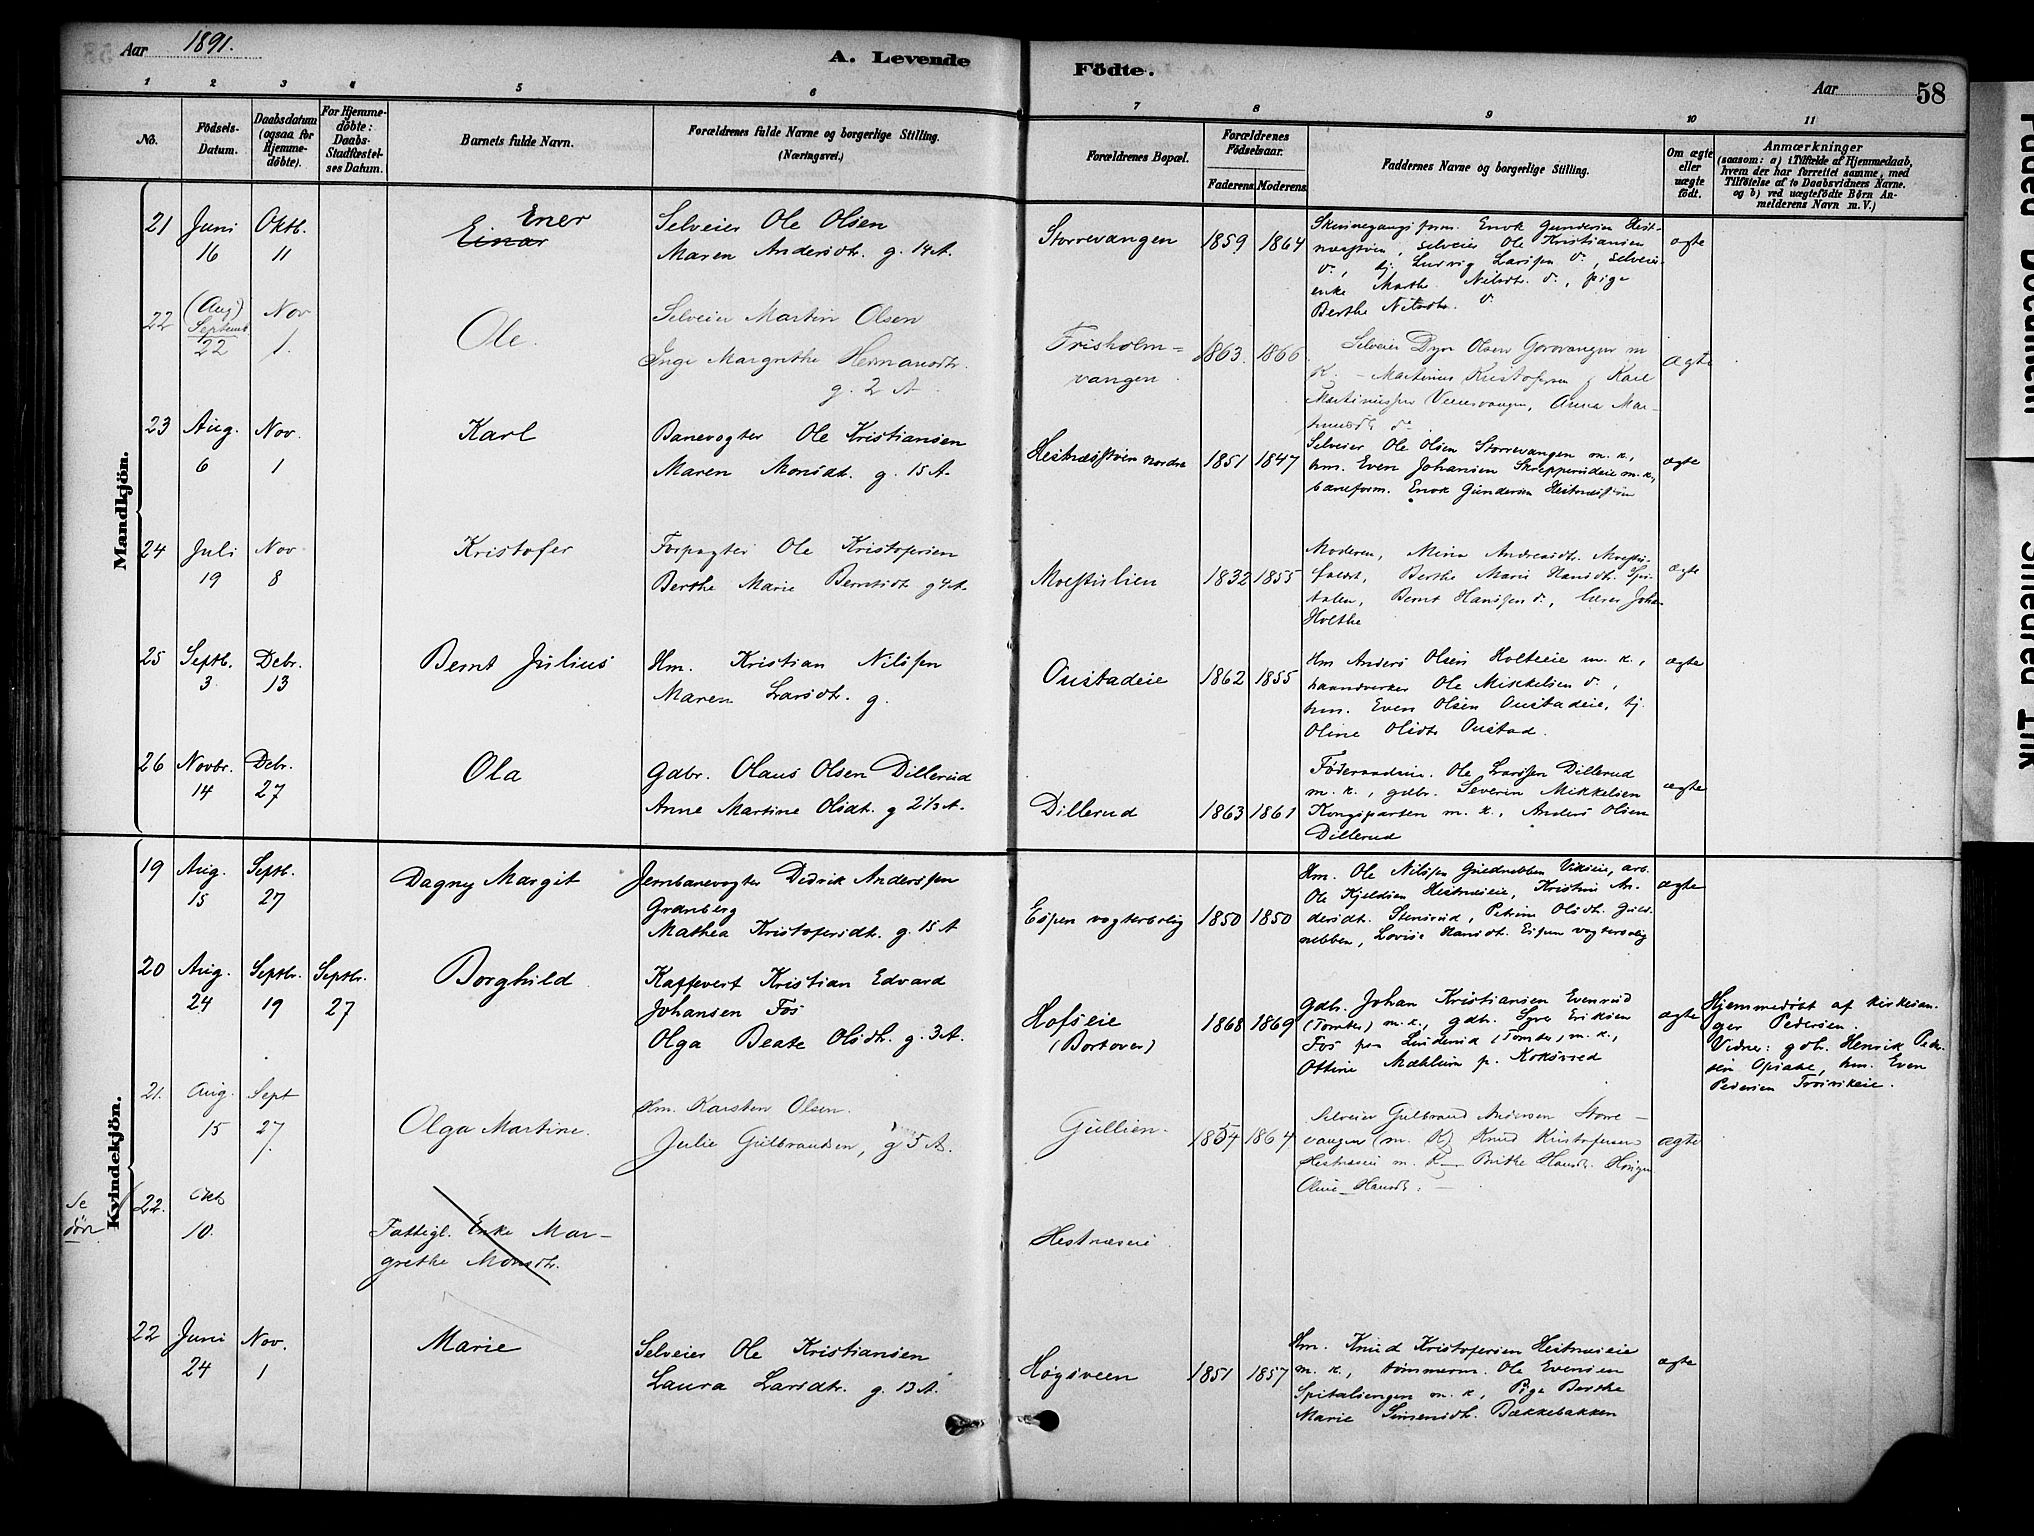 Aar 1891.
A. Levende Födte.
Aar 58
1 2 3 4 5 6 7 8 9 10 11
No.
Födsels-Datum.
Daabsdatum (ogsaa for Hjemme-döbte).
For Hjemme-döbte: Daabs-Stadfæstel-ses Datum.
Barnets fulde Navn.
Forældrenes fulde Navne og borgerlige Stilling.
(Næringsvei.)
Forældrenes Bopæl.
Forældrenes Födselsaar.
Faderens Moderens
Faddernes Navne og borgerlige Stilling.
Om ægte eller uægte födt.
Anmærkninger
(saasom: a) i Tilfælde af Hjemmedaab,
hvem der har forrettet samme, med
Tilföielse af to Daabsvidners Navne.
og b) ved uægtefödte Börn An-
melderens Navn m. V.)
Mandkjön.
21 Juni 16 Oktb. 11
Ener
Einar
Selveier Ole Olsen
Maren Andersdtr. g. 14 A.
Storrevangen 1859 1864
Enok Gundersen
selveier Ole Kristiansen
d., tj. Ludvig Larssen d., selveier-
enke Marthe Nilsdtr. d., pige
Berthe Nilsdtr. d.
ægte
22 (Aug) Septemb 22 Nov 1.
Ole.
Selveier Martin Olsen
Inge Margrethe Hermansdtr.
g. 2 A.
Frisholm-
vangen. 1863. 1866
Selveier Olsen m
K. - Martinus Kristofersen Karl
Martinussen Anna Mar-
ægte
23 Aug. 6 Nov. 1
Karl
Banevogter Ole Kristiansen
Maren Monsdt. g. 15 A.
nordre 1851 1847
Selveier Ole Olsen Storrevangen m. k.,
hm. Even Johansen m. k.,
baneform. Enok Gundersen
ægte
24 Juli 19 Nov 8
Kristofer
Forpagter Ole Kristofersen
Berthe Marie Berntsdt. g 4 A.
Moestulien 1832 1855
Moderen, Mina Andreasdtr.
Berthe Marie Hansdtr.
Bernt Hanssen d., lærer Johan
Holthe
ægte
25 Septb. 3. Debr. 13
Bernt Julius
Hm. Kristian Nilssen
Maren Larsdtr. g.
Oustadeie 1862 1855
Hm Anders Olsen Holteeie m. k.,
haandverker Ole Mikkelsen d.,
hm. Even Olsen Oustadeie, tj.
Oline Olsdtr Oustad.
ægte
26 Novbr. 14 Debr. 27
Ola
Gdbr. Olaus Olsen Dillerud
Anne Martine Olsdt. g 2 1/3 A.
Dillerud 1863 1861
Ole Larssen Dillerud
m. k., gdbr. Severin Mikkelsen
Kongsparten m. k., Anders Olsen
Dillerud
ægte
Kvindekjön.
19 Aug. 15 Septb. 27
Dagny Margit
Jernbanevogter Didrik Anderssen
Granberg
Mathea Kristofersdt. g. 15 A
Espen vogterbolig 1850 1850
Hm. Ole Nilssen Vikseie, arb.
Ole Kjeldsen Hestnæseie, Kristine An-
dersdt. Stensrud, Petrine Olsdt.
nebben, Lovise Hansdt. Espen vogterbolig
ægte
20 Aug. 24 Septbr. 19 Septbr. 27
Borghild
Kaffevert Kristian Edvard
Johansen Fos
Olga Beate Olsdtr. g. 3 A.
Hofseie
(Bortover) 1868 1869
Gdbr. Johan Kristiansen Evenrud
(Tomter) m. k., gdbr. Syver Eriksen
Fos paa Linderud (Tomter, m. k.,
Ottine Mæhlum p. Koksrud
ægte
Hjemmedöbt af kirkesan-
ger Pedersen.
Vidner: gdb. Henrik Peder-
sen Opsahl, hm. Even
Pedersen
21. Aug. 15 Sept 27.
Olga Martine.
Hm. Karsten Olsen.
Julie Gulbrandsen, g 5 A.
Gullien. 1854 1864
Selveier Gulbrand Andersen Storre-
vangen (m. K) Knud Kristofersen
Hestnæseie m. K - Brithe Hansdtr.
Oline Hansdt.
ægte
Se döde
22. Oktb 10.
Fattigl. Enke Mar-
grethe Monsdtr.
Hestnæseie
22 Juni 24 Nov. 1
Marie
Selveier Ole Kristiansen
Laura Larsdtr. g. 13 A.
Høgsveen 1851 1857
Hm. Knud Kristofersen Hestnæseie
m. k., tømmerm. Ole Evensen
Spitalsengen m. k., Pige Berthe
Marie Simensdt. Bækkebakken
ægte
Faded Document
Smeared Ink